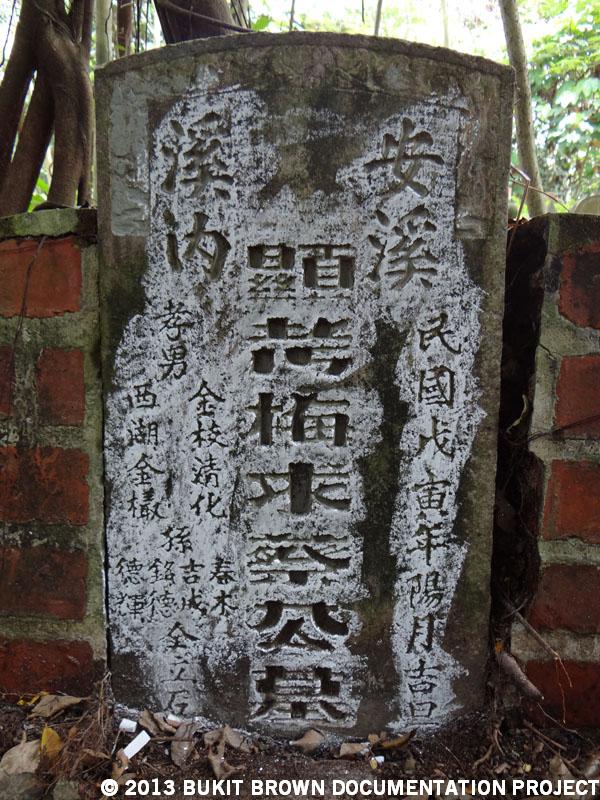 安溪
民國戊寅年陽月吉旦
顯考梅求蔡公墓
溪內
孝男
金枝清化
西湖金𣛮
孫
春木
吉成
銘德
德輝
仝立石
© 2013 BUKIT BROWN DOCUMENTATION PROJECT